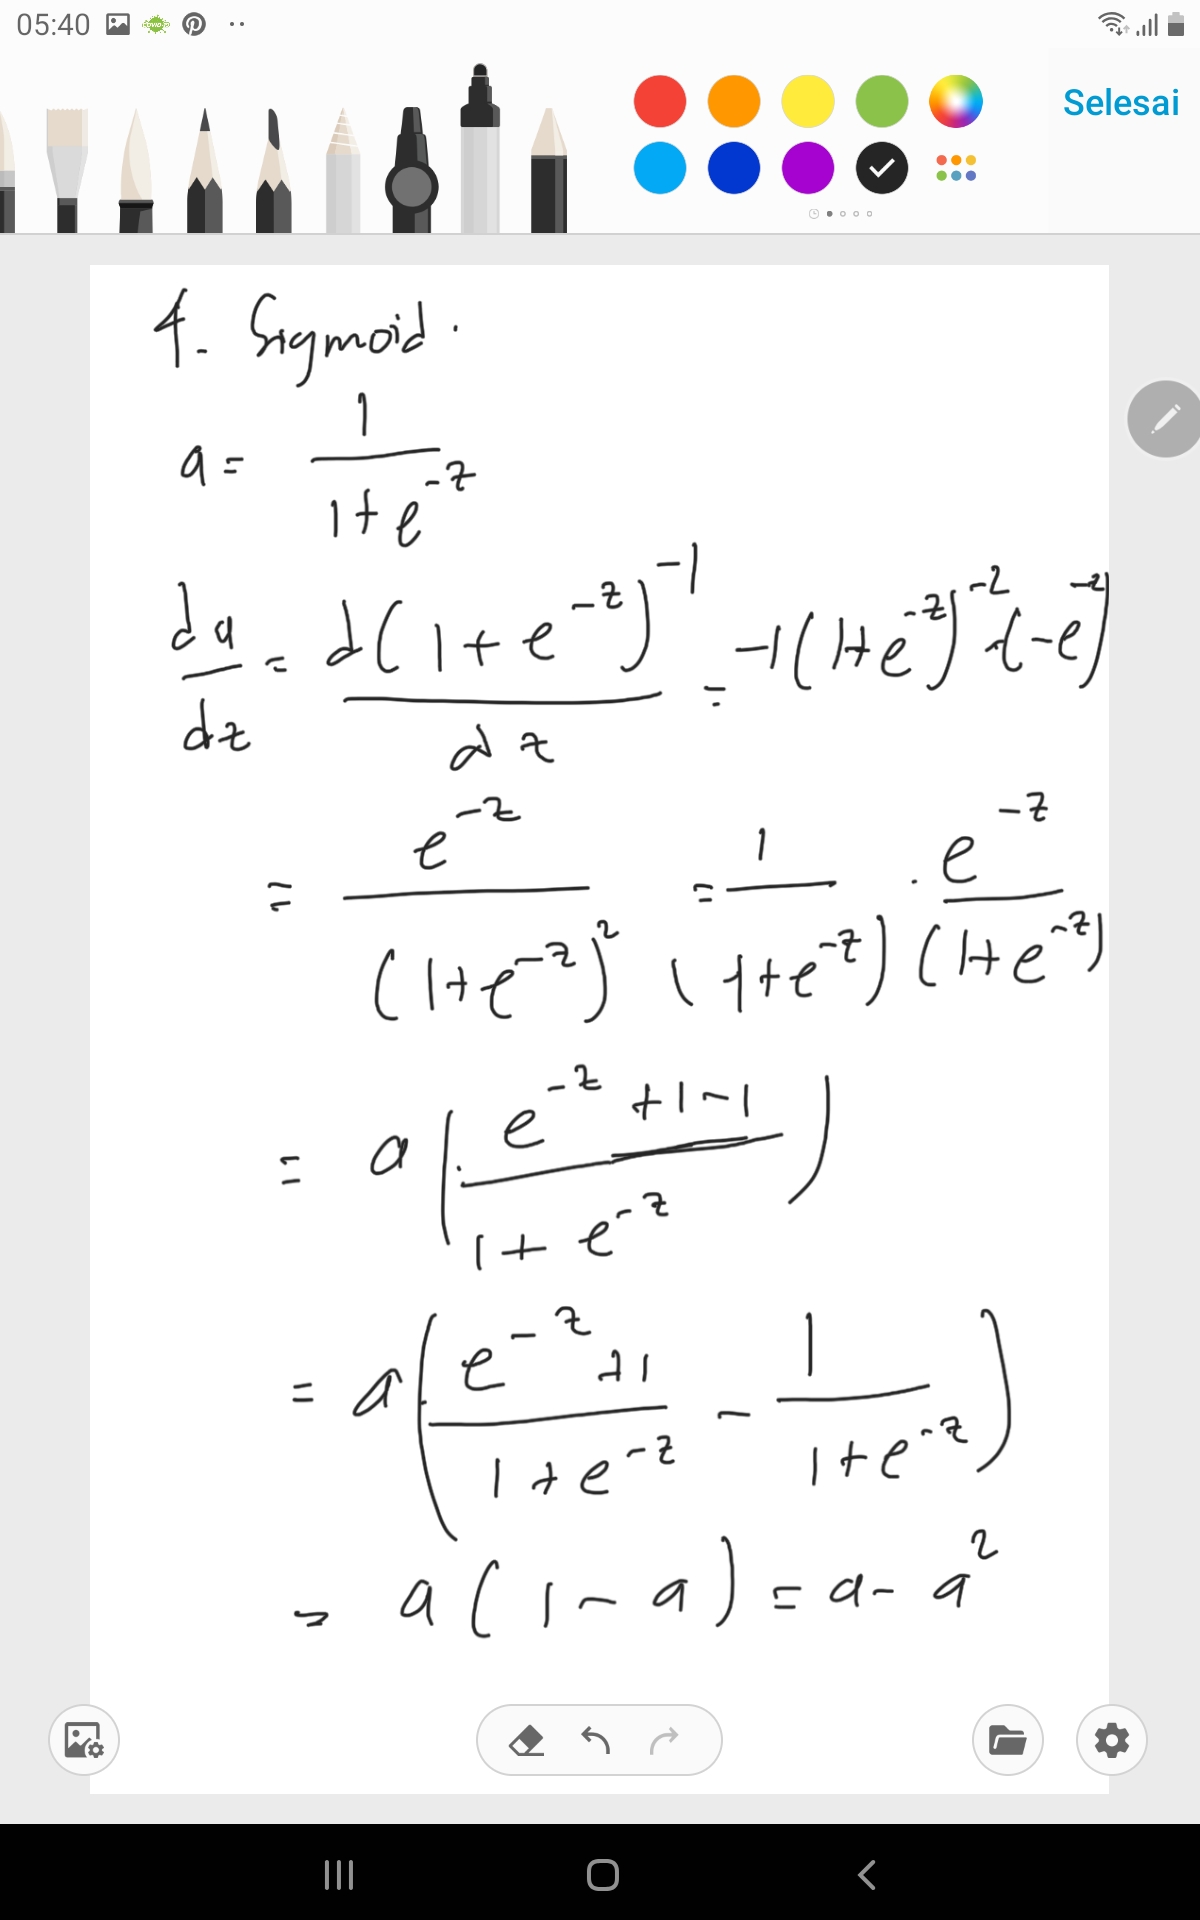 05:40
Selesai
4. Sigmoid.
a = 1 / (1 + e^-z)
da/dz = d(1 + e^-z)^-1 / dz = -1(1+e^-z)^-2 · (-e^-z)
= e^-z / (1+e^-z)^2 = 1 / (1+e^-z) · e^-z / (1+e^-z)
= a( (e^-z +1-1) / (1+e^-z) )
= a( (e^-z +1) / (1+e^-z) - 1 / (1+e^-z) )
= a(1-a) = a - a^2